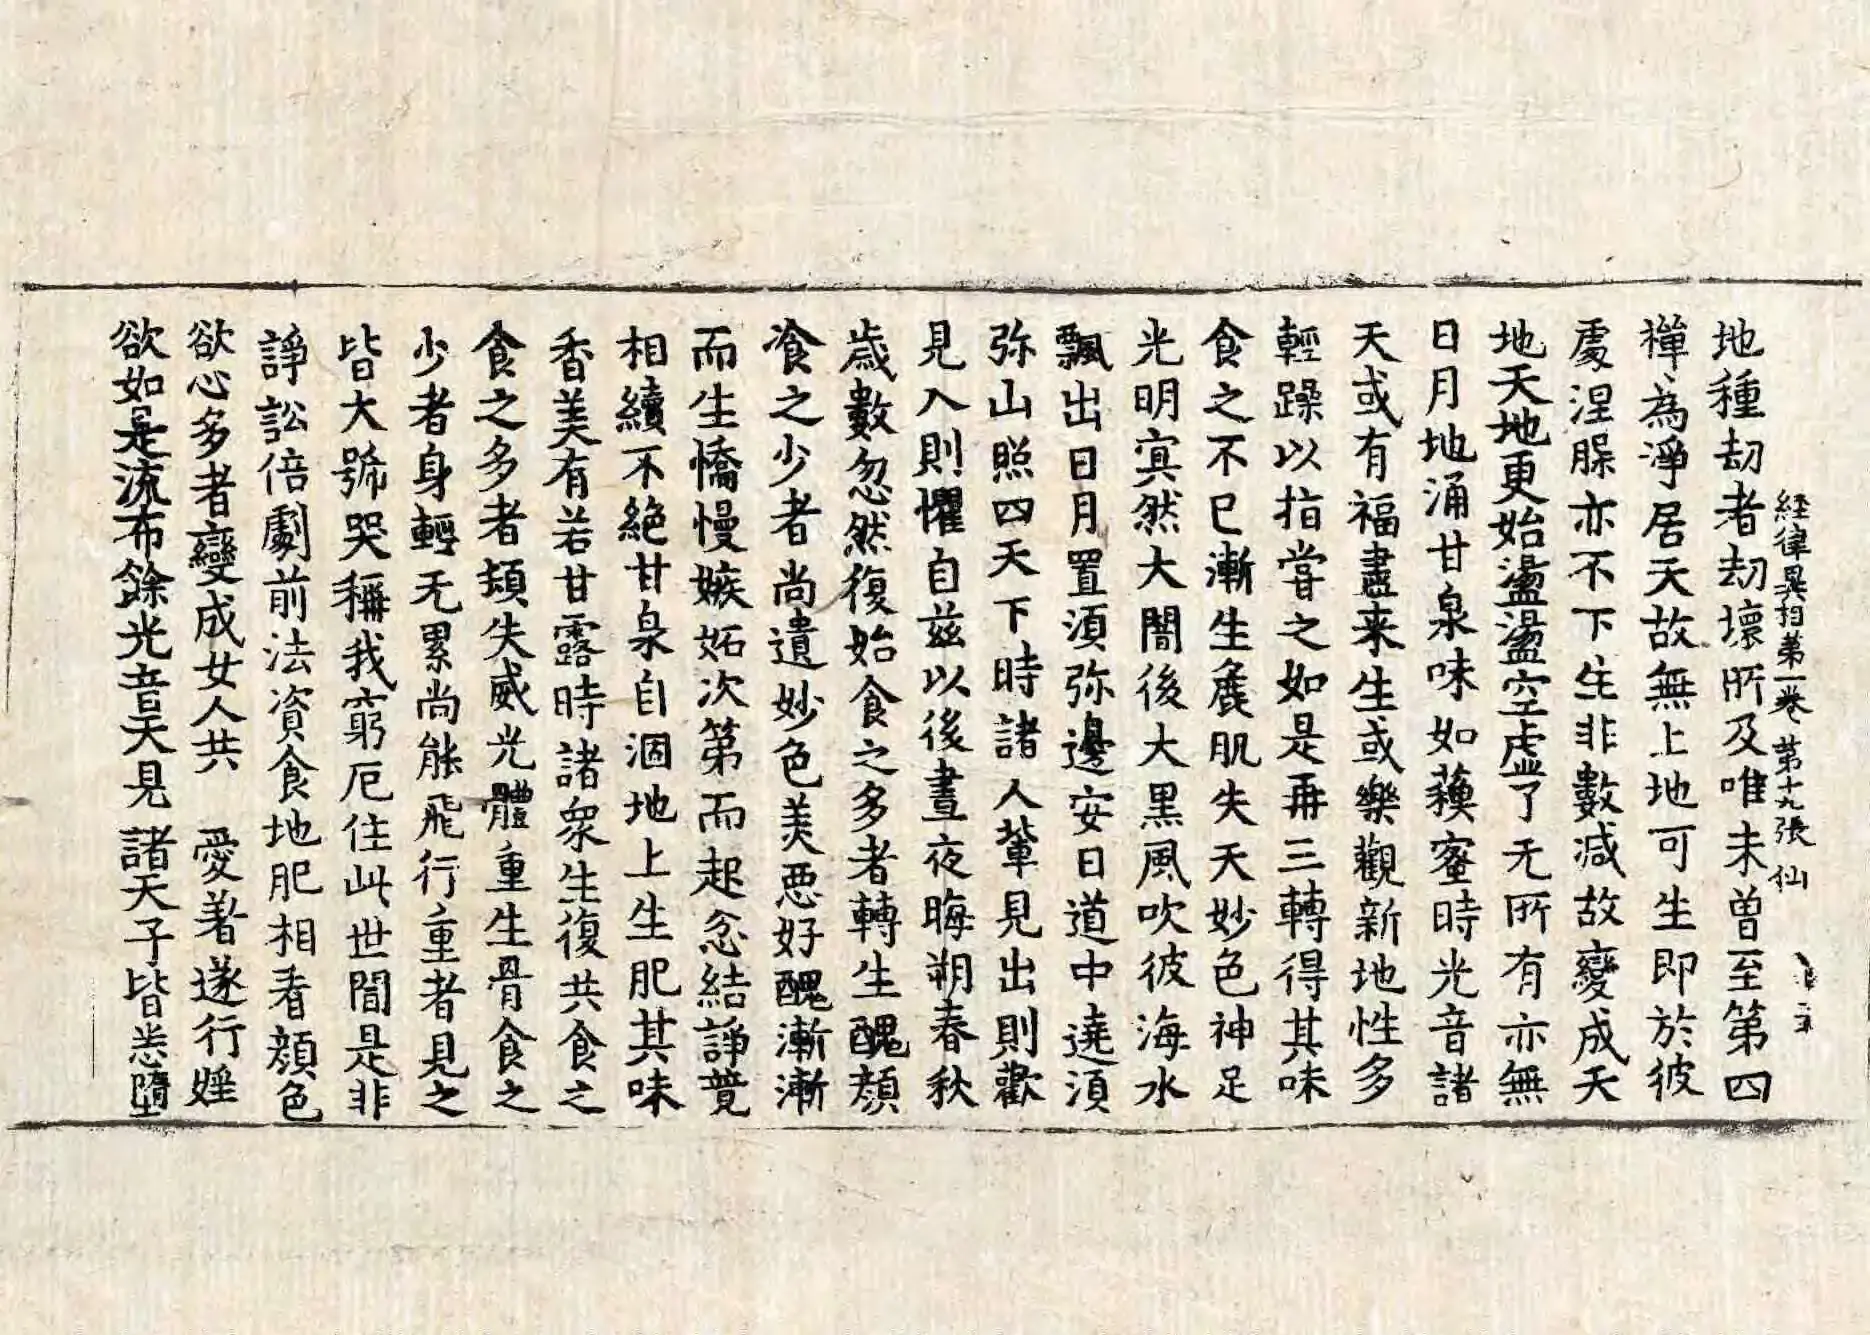 経律異相第一卷 第十九張 仙
地種劫者劫壞所及唯未曾至第四
禪為淨居天故無上地可生即於彼
處涅槃亦不下生非數減故變成天
地天地更始盪盪空虛了无所有亦無
日月地涌甘泉味如蘇蜜時光音諸
天或有福盡来生或樂觀新地性多
輕躁以指甞之如是再三轉得其味
食之不已漸生麁肌失天妙色神足
光明㝠然大闇後大黑風吹彼海水
飄出日月置須弥邊安日道中遶須
弥山照四天下時諸人輩見出則歡
見入則懼自茲以後晝夜晦朔春秋
歲數忽然復始食之多者轉生醜顏
飡之少者尚遺妙色美惡好醜漸漸
而生憍慢嫉妬次第而起忿結諍競
相續不絶甘泉自涸地上生肥其味
香美有若甘露時諸衆生復共食之
食之多者頓失威光體重生骨食之
少者身輕无累尚能飛行重者見之
皆大號哭稱我窮厄住此世間是非
諍訟倍劇前法資食地肥相看顏色
欲心多者變成女人共 愛著遂行婬
欲如是流布餘光音天見諸天子皆悉墮